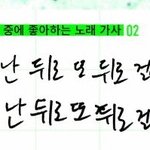 중에 좋아하는 노래 가사 02
난 뒤로 또 뒤로 걷
난 뒤로 또 뒤로 걷